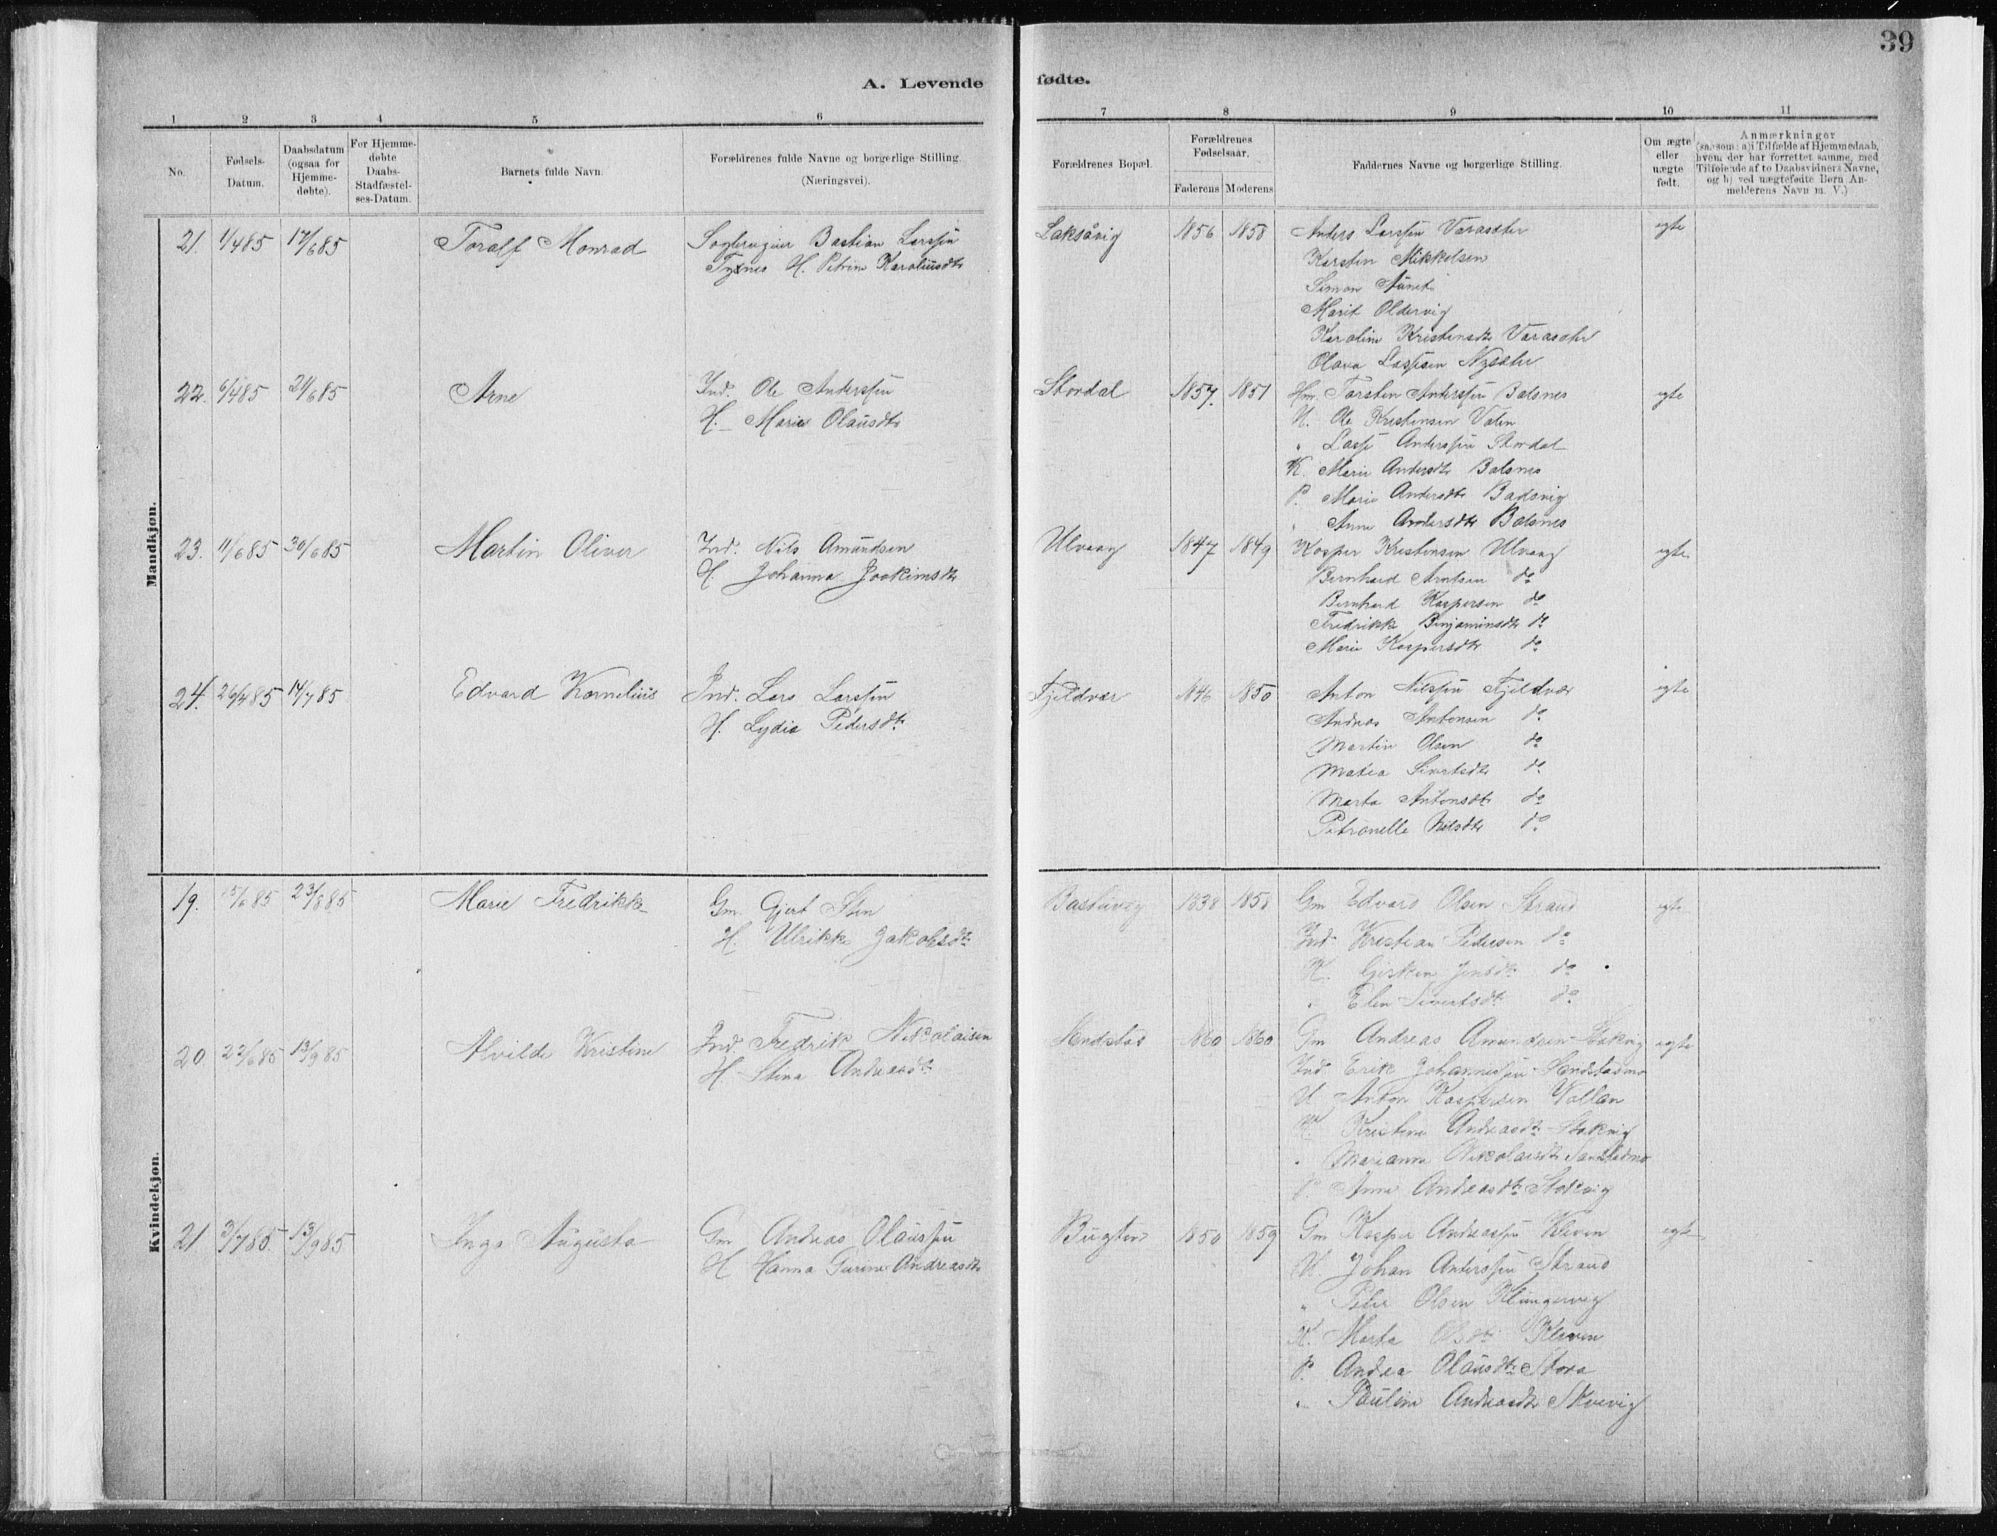 39
A. Levende fødte.
1 2 3 4 5 6 7 8 9 10 11
No.
Fødsels-Datum.
Daabsdatum (ogsaa for Hjemme-døbte).
For Hjemme-døbte Daabs-Stadfæstel-ses-Datum.
Barnets fulde Navn.
Forældrenes fulde Navne og borgerlige Stilling.
(Næringsvei).
Forældrenes Bopæl.
Forældrenes Fødselsaar.
Faderens Moderens
Faddernes Navne og borgerlige Stilling.
Om ægte eller uægte født.
Anmærkninger
(saasom: a) i Tilfælde af Hjemmedaab, hvem der har forrettet samme, med Tilføiende af to Daabsvidners Navne, og b) ved uægtefødte Børn Anmelderens Navn m. V.)
Mandkjøn.
21. 1/485 17/685 Toralf Monrad
Bastian Larssen
H. Petrine Karoliusdtr
Laksåvig 1856 1858 egte
Anders Larssen Varasæter
Karsten Mikkelsen
Simon
Marit Oldervig
Karoline Kristensdtr Varasæter
Olava Lassesen Nysæter
22. 6/485 21/685 Arne
Ind. Ole Anderssen
H. Marie Olausdtr
Stordal 1857. 1851 egte
Gm. Torsten Anderssen Balsnes
U. Ole Kristensen Valen
" Lasse Anderssen Stordal
K. Marie Andersdtr Balsnes
P. Marie Andersdtr Badsvig
" Anne Andersdtr Balsnes
23. 11/685 30/685 Martin Oliver
Ind. Nils Amundsen
H. Johanna Joakimsdtr
Ulvaag 1847 1849 egte
Kasper Kristensen Ulvaag
Bernhard Arntsen do
Bernhard Kaspersen do
Fredrikke Benjaminsdtr do
Marie Kaspersdtr do
24. 26/485 14/785 Edvard Kornelius
Ind. Lars Larssen
H. Lydia Pedersdtr
Fjeldvær 1846 1850 egte
Anton Nilssen Fjeldvær
Andreas Antonsen do
Martin Olsen do
Matea Sivertsdtr do
Marta Antonsdtr do
Petronelle Nilsdtr do
Kvindekjøn.
19. 15/685 23/885 Marie Fredrikke
Gm. Gjert Sten
H. Ulrikke Jakobsdtr
Bastuvig 1838 1858 egte
Gm Edvard Olsen Strand
Ind. Kristian Pedersen do
K. Gjisken Jensdtr do
" Elen Sivertsdtr do
20. 22/685 13/985 Alvilde Kristine
Ind Fredrik Nikolaisen
H. Stina Andreasdtr
Hendstad 1860 1860 egte
Gm Andreas Amundsen Stokvig
Ind Erik Johannessen Hendstadmo
U Anton Kaspersen Vollan
K Kristine Andreasdtr Stokvig
" Marianne Nikolaisdtr
P Anne Andreasdtr Stokvig
21 3/785. 13/985 Inga Augusta
Gm Andreas Olaussen
H Hanna Gurine Andreasdtr
Bugten 1850 1859 egte
Gm Kasper Andreassen Kleven
U. Johan Anderssen Strand
" Peter Olsen Klungervig
K. Marta Olsdtr Kleven
P. Andrea Olausdtr Stora
" Pauline Andreasdtr Skvevig